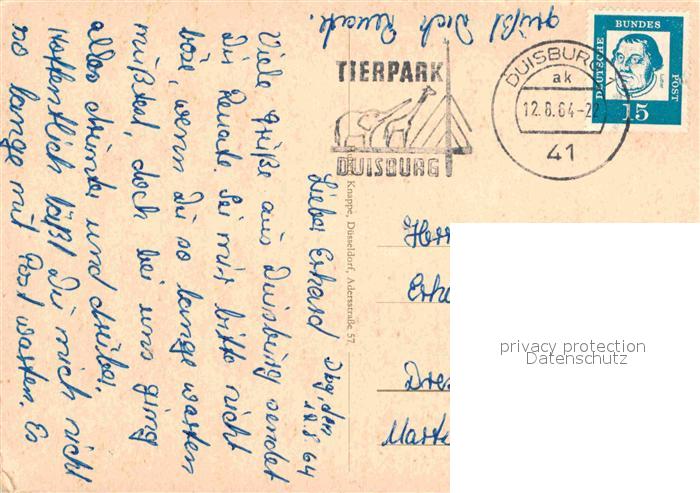 TIERPARK
DUISBURG
DUISBURG
ak
12.8.64-22
41
DEUTSCHE
BUNDES
POST
15
Dbg, den
12.8.64
Lieber Erhard
Viele Grüße aus Duisburg sendet
Dir Renate. Sei mir bitte nicht
böse, wenn Du so lange warten
müßtest, doch bei uns ging
alles drunter und drüber.
Hoffentlich läßt Du mich nicht
so lange mit Post warten. Es
grüßt Dich Renate.
Knappe, Düsseldorf, Adersstraße 57
Her
Erh
Dre
Mart
privacy protection
Datenschutz